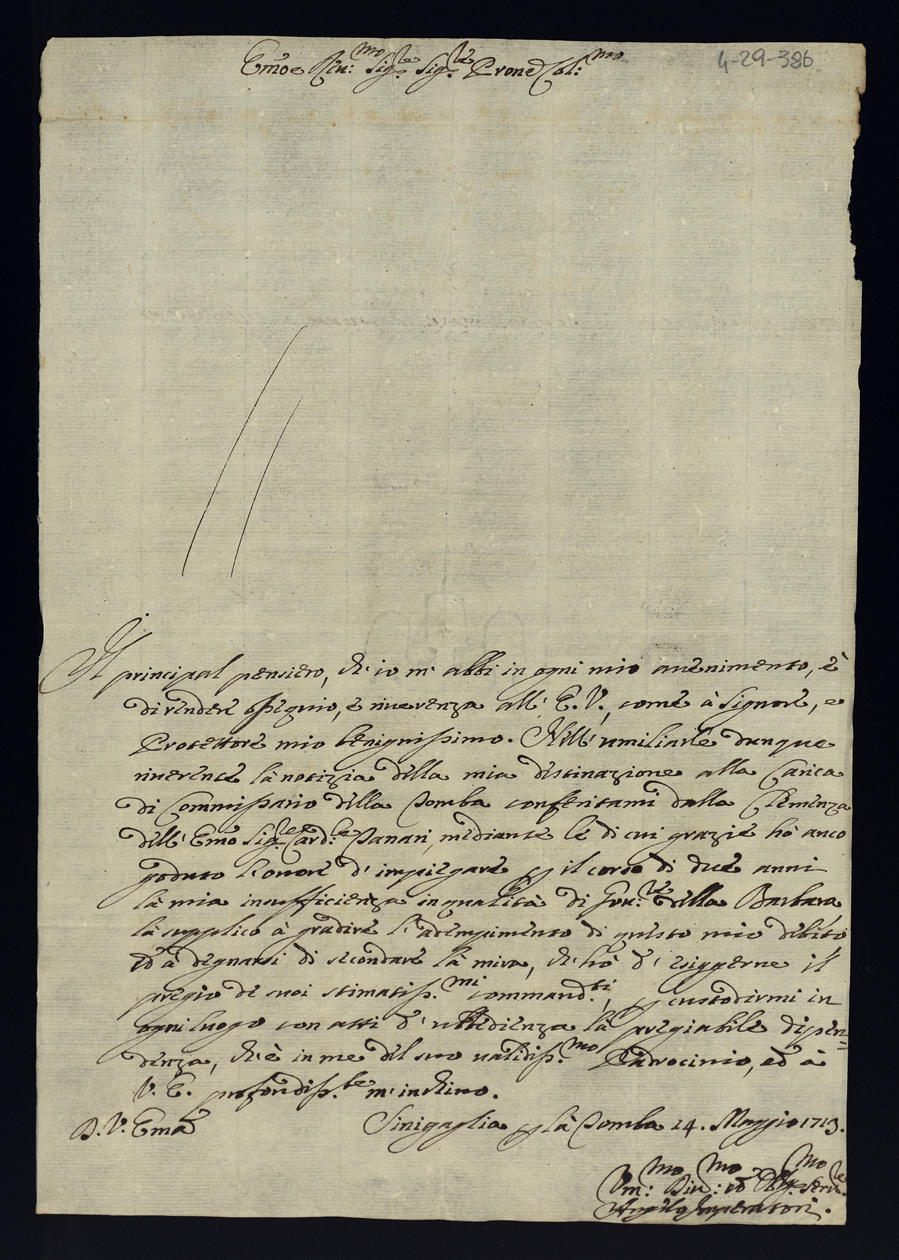 Emo e Reu:mo Sig.re Sig.re Prone Col:mo
4-29-386
Il principal pensiero, ch' io m' abbi in ogni mio auenimento, è
di rendere osseguio, e riuerenza all' E. V., come à Signore, e
Protettore mio benignissimo. Nell' umiliarle dunque
riuerente la notizia della mia destinazione alla Carica
di Commissario della Tomba conferitami dalla Clemenza
dell' Emo Sig.re Card.le Panari, mediante le di cui grazie hò anco
goduto l' onore d' impiegare p il corso di due anni
la mia insufficienza in qualità di Gou.re della Barbara
la supplico à gradire l' adempimento di questo mio debito
ed à degnarsi di secondare la mira, che hò d' esiggerne il
pregio de suoi stimatiss.mi command.ti, p custodirmi in
ogni luogo con atti d' ubbidienza la pregiabile dipen=
denza, ch' è in me del suo ualidiss.mo Padrocinio, ed à
V. E. profondiss.te m' inchino.
D. V. Ema
Sinigaglia p la Tomba 14. Maggio 1713.
Vm:mo Diu:mo ed Obb.mo Seru.re
Angelo Imperatori.